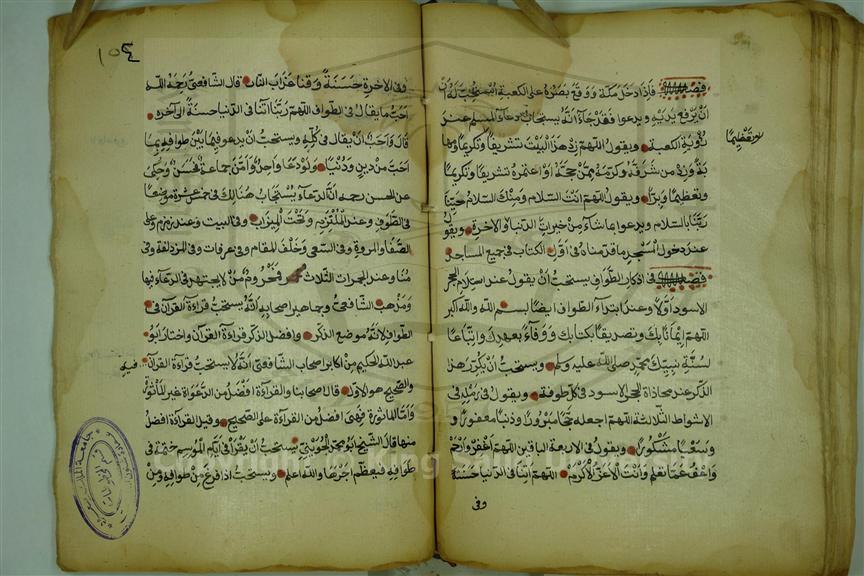 فصل فاذا دخل مكة ووقع بصره على الكعبة استحب له ان
ان يرفع يديه ويدعوا فقد جاء انه يستجاب دعاء المسلم عند
رؤية الكعبة ويقول اللهم زد هذا البيت تشريفا وتكريما ومها
وتعظيما
بة وزد من شرفه وكرمه ممن حجه او اعتمره تشريفا وتكريما
وتعظيما وبرا ويقول اللهم انت السلام ومنك السلام حينا
ربنا بالسلام ويدعوا بما شاء من خيرات الدنيا والاخرة ويقول
عند دخول المسجد ما قدمناه في اول الكتاب في جميع المساجد
فصل في اذكار الطواف يستحب ان يقول عند استلام الحجر
الاسود اولا وعند ابتداء الطواف ايضا بسم الله والله اكبر
اللهم ايمانا بك وتصديقا بكتابك ووفاء بعهدك واتباعا
لسنة نبيك محمد صلى الله عليه وسلم ويستحب ان يكرر هذا
الذكر عند محاذاة الحجر الاسود في كل طوفة ويقول في رمله في
الاشواط الثلاثة اللهم اجعله حجا مبرورا وذنبا مغفورا و
وسعيا مشكورا ويقول في الاربعة الباقين اللهم اغفر وارحم
واعف عما تعلم وانت الاعز الاكرم اللهم اتنا في الدنيا حسنة
وفي
١٥٤
وفي الاخرة حسنة وقنا عذاب النار قال الشافعي رحمه الله
احب ما يقال في الطواف اللهم ربنا اتنا في الدنيا حسنة الى آخره
قال واحب ان يقال في كله ويستحب ان يدعو فيما بين طوافه بما
احب من دين ودنيا ولو دعا واحد وامن جماعة فحسن وحكي
عن الحسن رحمه الله ان الدعاء يستجاب هنالك في خمس عشرة موضعا
في الطواف وعند الملتزم وتحت الميزاب وفي البيت وعند زمزم وعلى
الصفا والمروة وفي السعي وخلف المقام وفي عرفات وفي المزدلفة وفي
منا وعند الجمرات الثلاث فمحروم من لا يجتهد في الدعاء فيها
ومذهب الشافعي وجماهير اصحابه انه يستحب قراءة القرآن في
الطواف لانه موضع الذكر وافضل الذكر قراءة القرآن واختار ابو
عبد الله الحليمي من اكابر اصحاب الشافعي انه لا يستحب قراءة القرآن
فيه
والصحيح هو الاول قال اصحابنا والقراءة افضل من الدعوات غير المأثورة
واما المأثورة فهي افضل من القراءة على الصحيح وقيل القراءة افضل
منها قال الشيخ ابو محمد الجويني يستحب ان يقرأ في ايام الموسم ختمة في
طوافه فيعظم اجرها والله اعلم ويستحب اذا فرغ من طوافه ومن